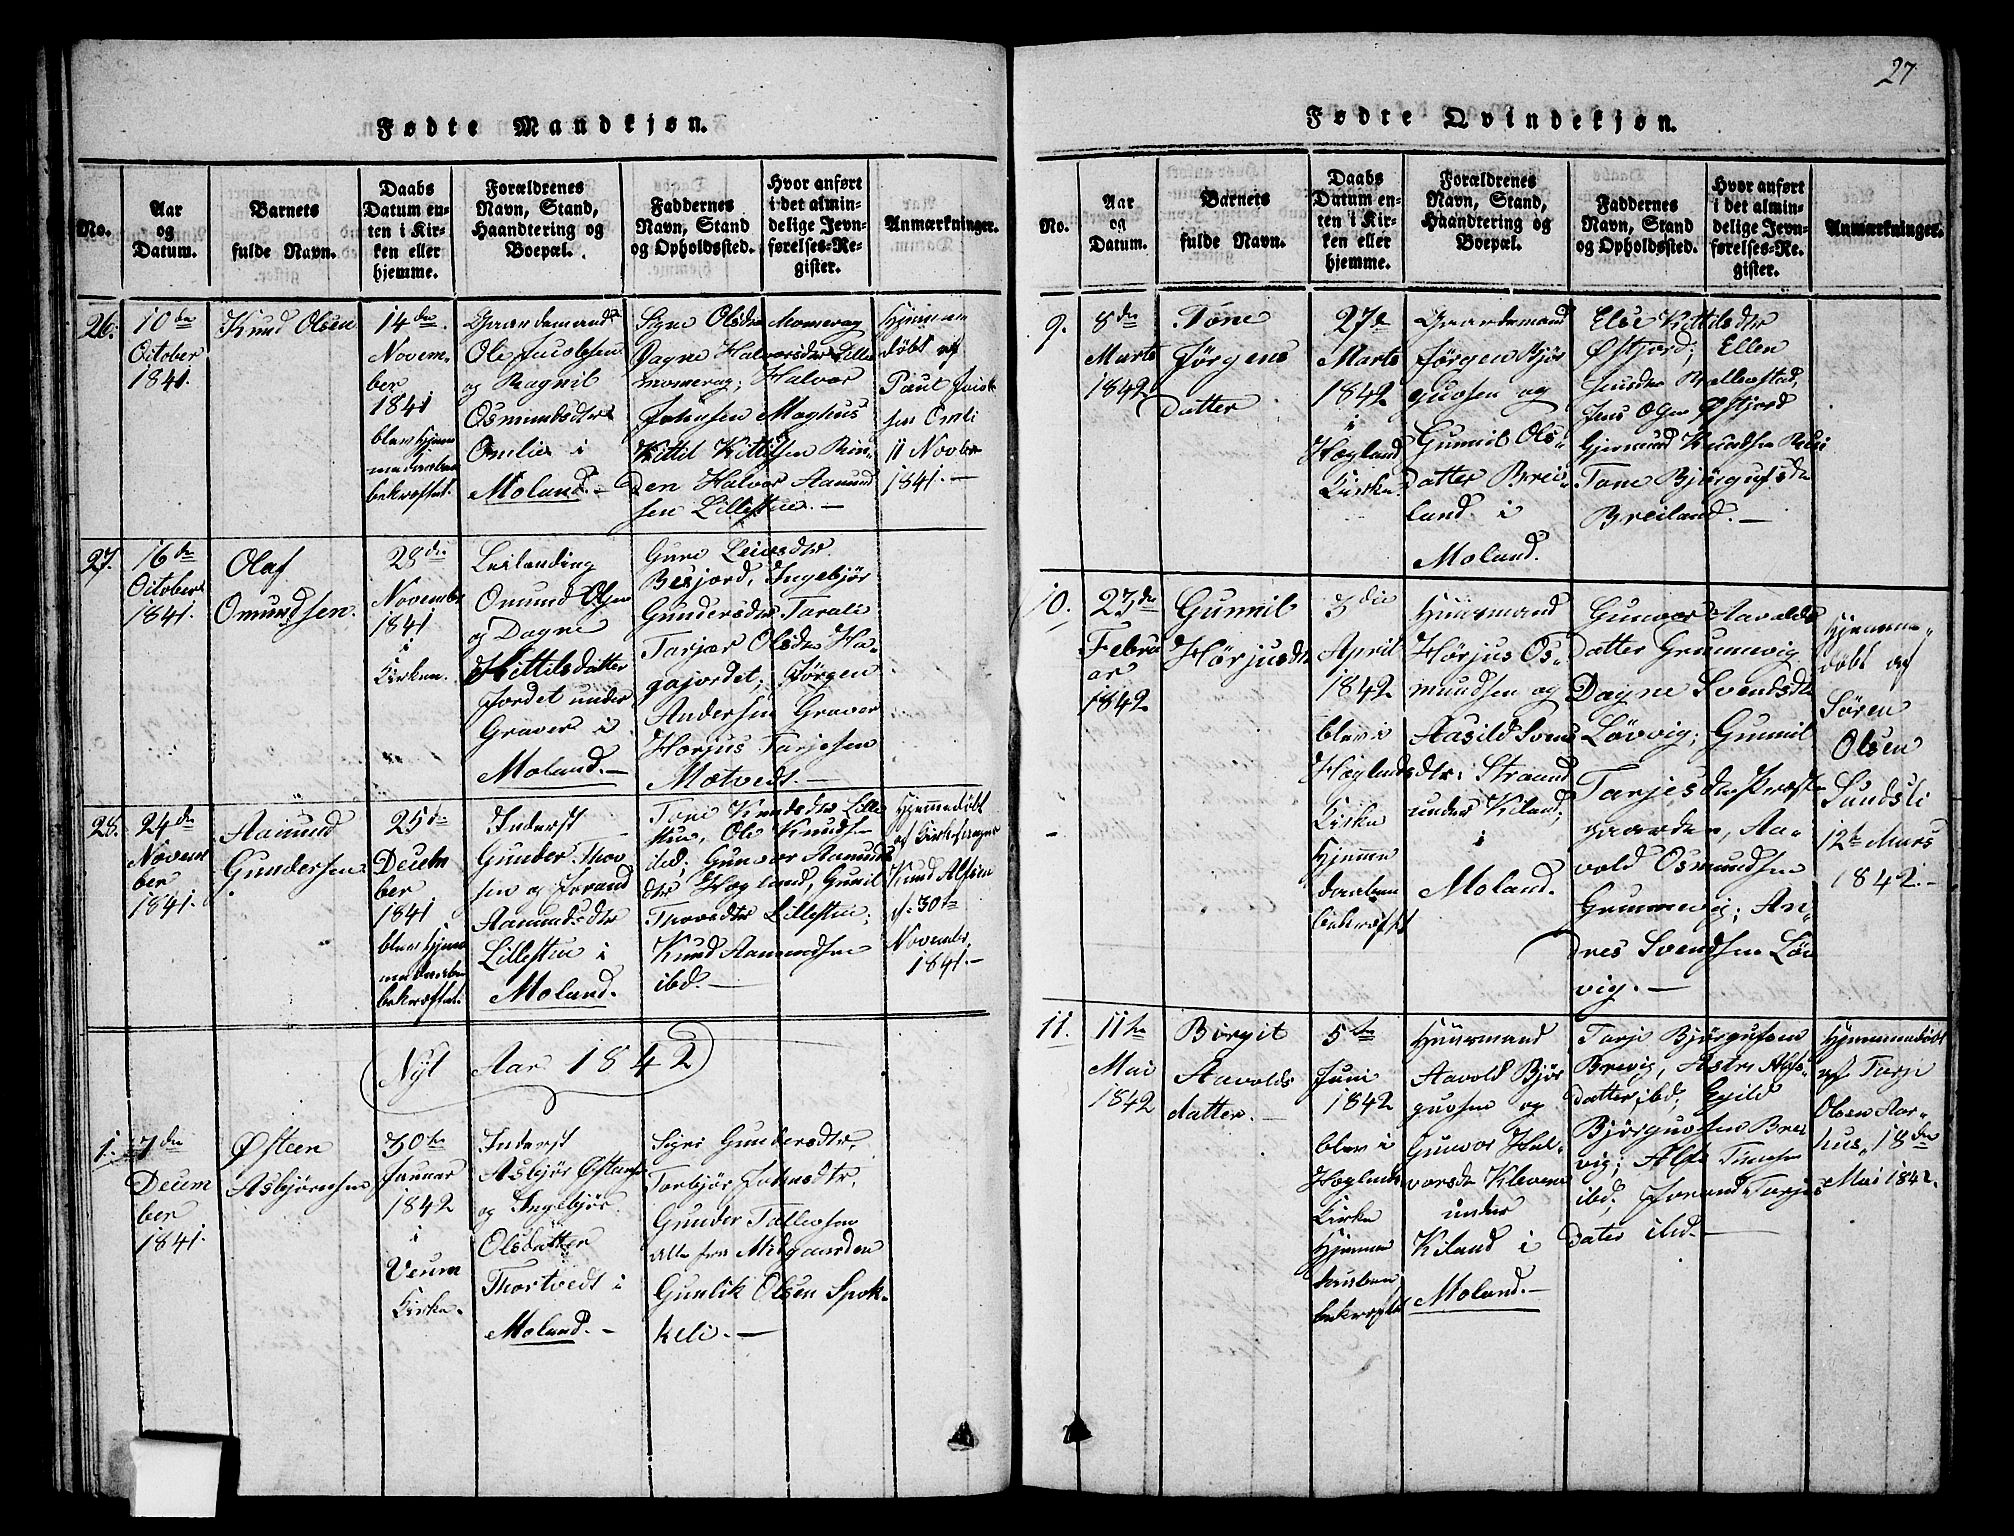 27
Fødte Mandkjøn.
No.
Aar
og
Datum.
Barnets
fulde Navn.
Daabs
Datum en-
ten i Kir-
ken eller
hjemme.
Forældrenes
Navn, Stand,
Haandtering og
Boepæl.
Faddernes
Navn, Stand
og Opholdssted.
Hvor anført
i det almin-
delige Jevn-
førelses-Re-
gister.
Anmærkninger.
26.
10de
October
1841.
Knud Olsen
14de
Novem-
ber
1841
blev Hjem-
medaaben
bekræftet.
Gaardemand
Ole Jacobsen
og Ragnil
Osmundsdtr
Omlie i
Moland.
Signe Olsdtr Momrag
Dagne Halvorsdtr Lille
momrag; Halvor
Johnsen Moghus
Kittil Kittilsen Rin-
den Halvor Aamund
sen Lillestue. —
Hjemme
døbt af
Paul
sen Omli
11 Novbr
1841. —
27.
16de
October
1841.
Olaf
Omundsen.
28de
Novembr
1841
i
Kirken.
Leilænding
Omund Olsen
og Dagne
Kittilsdatter
Jordet under
Graver i
Moland. —
Gure Leivsdtr
Besjord, Ingebjør
Gundersdtr Tarali
Tarjær Olsdtr Ha-
gajordet; Jørgen
Andersen Graver
Horjus Tarjesen
Mætvedt. —
28.
24de
Novem
ber
1841.
Aamund
Gundersen
25de
Decem
ber
1841
blev Hjem
medaaben
bekræftet.
Inderst
Gunder Thov
sen og Jorand
Aamundsdtr
Lillestue i
Moland.
Tone Knudsdtr Lille
stue, Ole Knudsen
ibd; Gunvor Aamunds
dtr Høgland, Gunil
Thovsdtr Lillestue;
Knud Aamundsen
ibd. —
Hjemmedøbt
af Kirkesanger
Knud Alfsen
d. 30te
Novembr.
1841. —
Nyt Aar 1842
1.
7de
Decem
ber
1841.
Østeen
Asbjørnsen
30te
Januar
1842
i
Veum
Kirke.
Inderst
Asbjør Østensen
og Ingebjør
Olsdatter
Thortvedt i
Moland. —
Signe Gundersdtr,
Torbjør Johnsdtr,
Gunder Tallevsen
alle fra Midgaarden
Gunlik Olsen Spok-
keli. —
Fødte Qvindekjøn.
No.
Aar
og
Datum.
Barnets
fulde Navn.
Daabs
Datum en-
ten i Kir-
ken eller
hjemme.
Forældrenes
Navn, Stand,
Haandtering og
Boepæl.
Faddernes
Navn, Stand
og Opholdssted.
Hvor anført
i det almin-
delige Jevn-
førelses-Re-
gister.
Anmærkninger.
9.
8de
Marts
1842
Tone
Jørgens
datter
27de
Marts
1842
i
Høgland
Kirke.
Gaardemand
Jørgen Bjør
guvsen og
Gunnil Ols-
datter Brei-
land i
Moland.
Else Kittilsdtr
Østjord; Ellen
Brallevstad,
Jens Olsen Østjord
Gjermund Knudsen
Tone Bjørgufsdtr
Breiland. —
10.
23de
Febru
ar
1842
Gunnil
Hørjusdtr
3die
April
1842
blev i
Høglands
Kirke
Hjemme
daaben
bekræftet
Huusmand
Hørjus Os-
mundsen og
Aasild Svens
dtr: Straand
under Kiland,
i
Moland.
Gunvor Aavolds
datter Grumevig
Dagne Svendsdtr
Løvvig; Gunnil
Tarjesdtr Præst-
gaarden, Aa-
vold Osmundsen
Grumevig; An-
dres Svendsen Løv
vig. —
Hjemme-
døbt af
Søren
Olsen
Sundsli
12te Mars
1842. —
11.
11te
Mai
1842
Borgit
Aavolds
datter. —
5te
Juni
1842
blev i
Høglands
Kirke
Hjemme
daaben
bekræftet
Huusmand
Aavold Bjør
guvsen og
Gunvor Hal-
vorsdtr Kleven
under
Kiland i
Moland. —
Tarje Bjørgufsen
Brevig, Astri Alfs-
datter ibd; Egild
Bjørguvsen Bre
vig; Alf Tarjesen
ibd; Jorand Tarjes
dater ibd. —
Hjemmedøbt
af Tarje
Olsen Aar-
hus, 18de
Mai 1842.